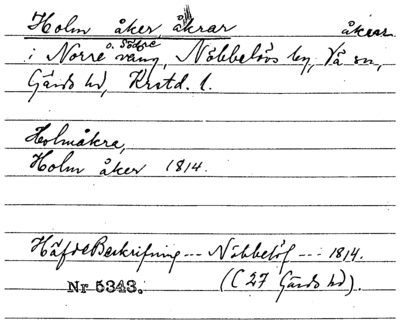 Holm åker, åkrar åkrar
i Norre o. Södre vång, Nöbbelövs by, Vä sn,
Gärds hd, Krstd. l.
Holmåkra,
Holm åker 1814.
Häfde Beskrifning --- Nöbbelöf --- 1814.
Nr 5343. (C 27 Gärds hd).